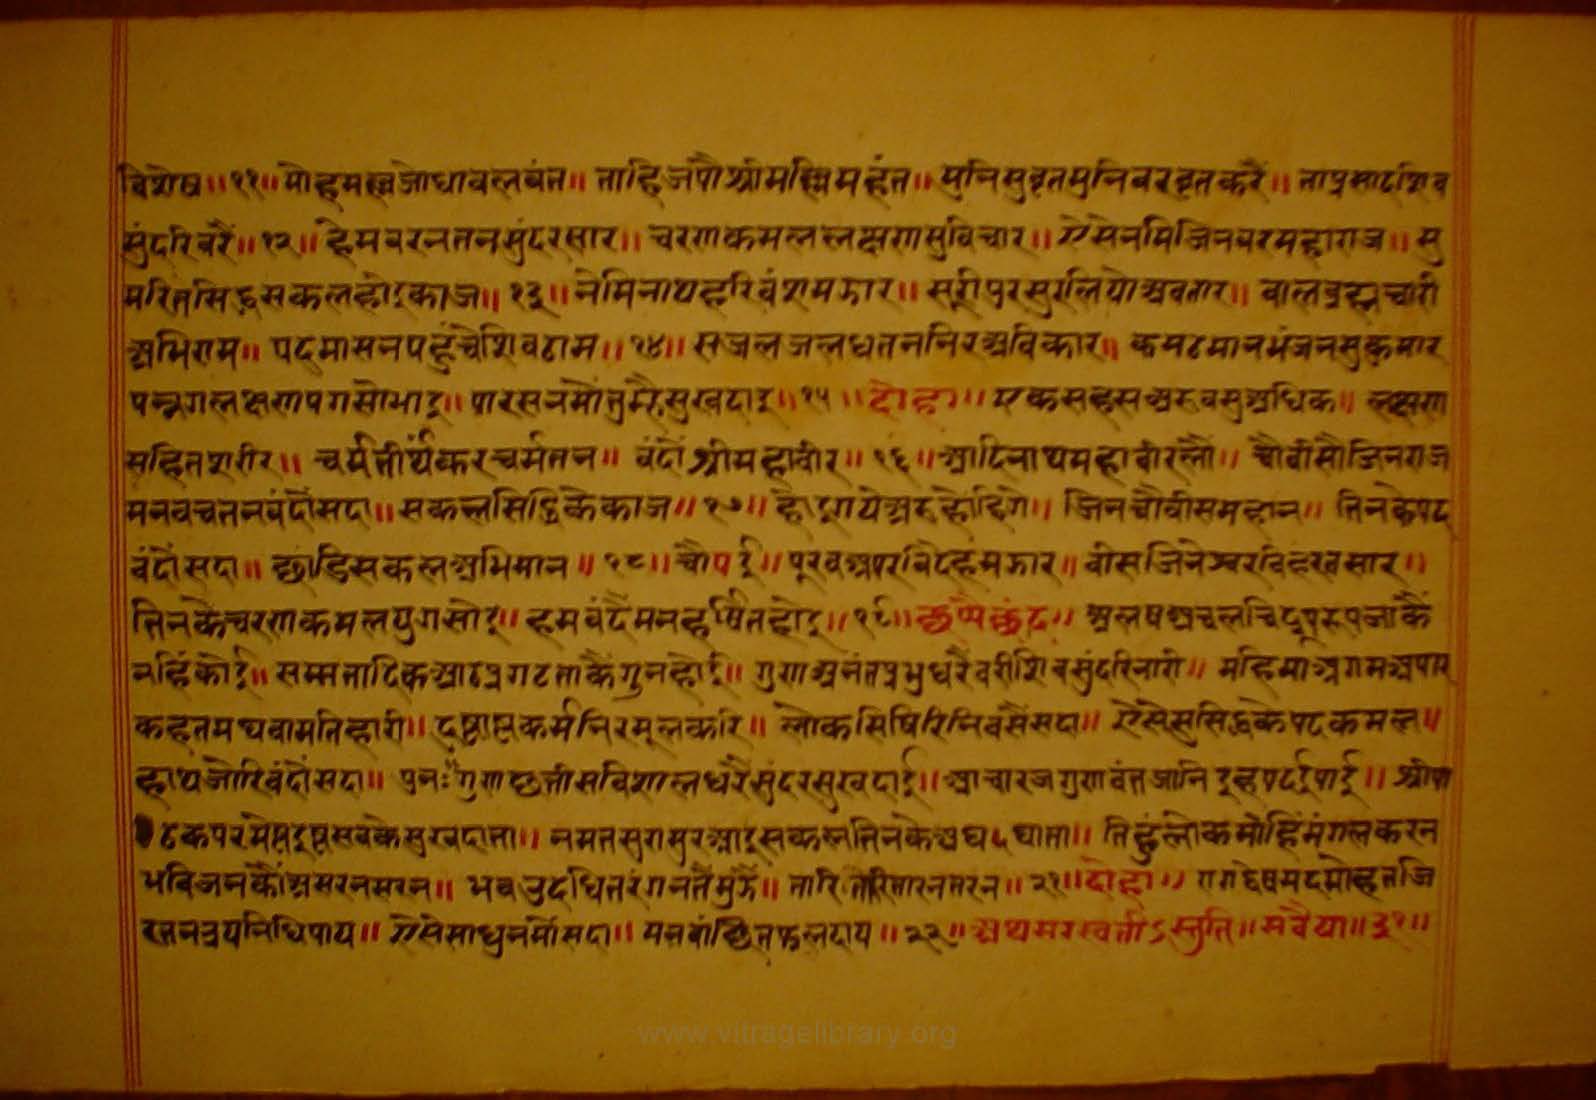 विशेष॥११॥मोहमल्लजोधाबलवंत॥ ताहिजंपौश्रीमल्लिमहंत॥ मुनिसुवृतमुनिवरवृतकरैं॥ ताप्रसादशिव
सुंदरिवरैं॥१२॥हेमवरनतनसुंदरसार॥ चरणकमललक्षणसुविचार॥ऐसेनमिजिनवरमहाराज॥ सु
मरितसिद्धसकलहोइकाज॥१३॥नेमिनाथहरिवंशमझार॥सूरीपुरसुरलियोअवतार॥ बालब्रह्मचारी
अभिराम॥ पदुमासनपहुंचेशिवठाम॥१४॥सजलजलधतननिरअविकार॥ कमठमानभंजनसुकुमार
पन्नगलक्षणपगसोभाइ॥पारसनमोंतुम्हैसुखदाइ॥१५॥दोहा॥ एकसहसअरुवसुअधिक॥ लक्षण
सहितशरीर॥ चर्मतीर्थंकरचर्मतन॥ वंदौंश्रीमहावीर॥१६॥आदिनाथमहावीरलौं॥ चौवीसौजिनराज
मनवचतनवंदौंसदा॥सकलसिद्धिकेकाज॥१७॥होइगयेअरुहोहिगे॥ जिनचौवीसमहान॥ तिनकेपद
वंदौंसदा॥छांडिसकलअभिमान॥१८॥चौपई॥पूरवअपरविदेहमझार॥वीसजिनेश्वरविहरतसार॥
तिनकेचरणकमलयुगसोइ॥हमवंदैमनहर्षितहोइ॥१९॥छप्पैछंद॥ अलषअचलचिद्रूपरूपजाकैं
नहिंकोई॥सम्मत्तादिकआठप्रगटताकैंगुनहोई॥गुणअनंतप्रभुधरैंवरीशिवसुंदरिनारी॥ महिमाअगमअपार
कहतमघवामतिहारी॥दुष्टाष्टकर्मनिरमूलकरि॥ लोकसिषिरिनिवसैंसदा॥ ऐसेसुसिद्धकेपदकमल॥
हाथजोरिवंदौंसदा॥ पुनः॥गुणछत्तीसविशालधरैंसुंदरसुखदाई॥आचारजगुणवंतजानि पाई॥ श्रीपा
ठकपरमेष्ठइष्टसबकेसुखदाता॥नमतसुरासुरआइसकलतिनकेअघ घाता॥ तिहुंलोकमांहिंमंगलकरन
भविजनकौंअसरनसरन॥ भवउदधितरंगनतैंमुझैं॥ तारितारितारनतरन॥२१॥दोहा॥ रागद्वेषमदमोहतजि
रतनत्रयनिधिपाय॥ऐसेसाधुनमोंसदा॥मनवांछितफलदाय॥२२॥अथसरस्वतीऽस्तुति॥सवैया॥३१॥
www.vitragelibrary.org